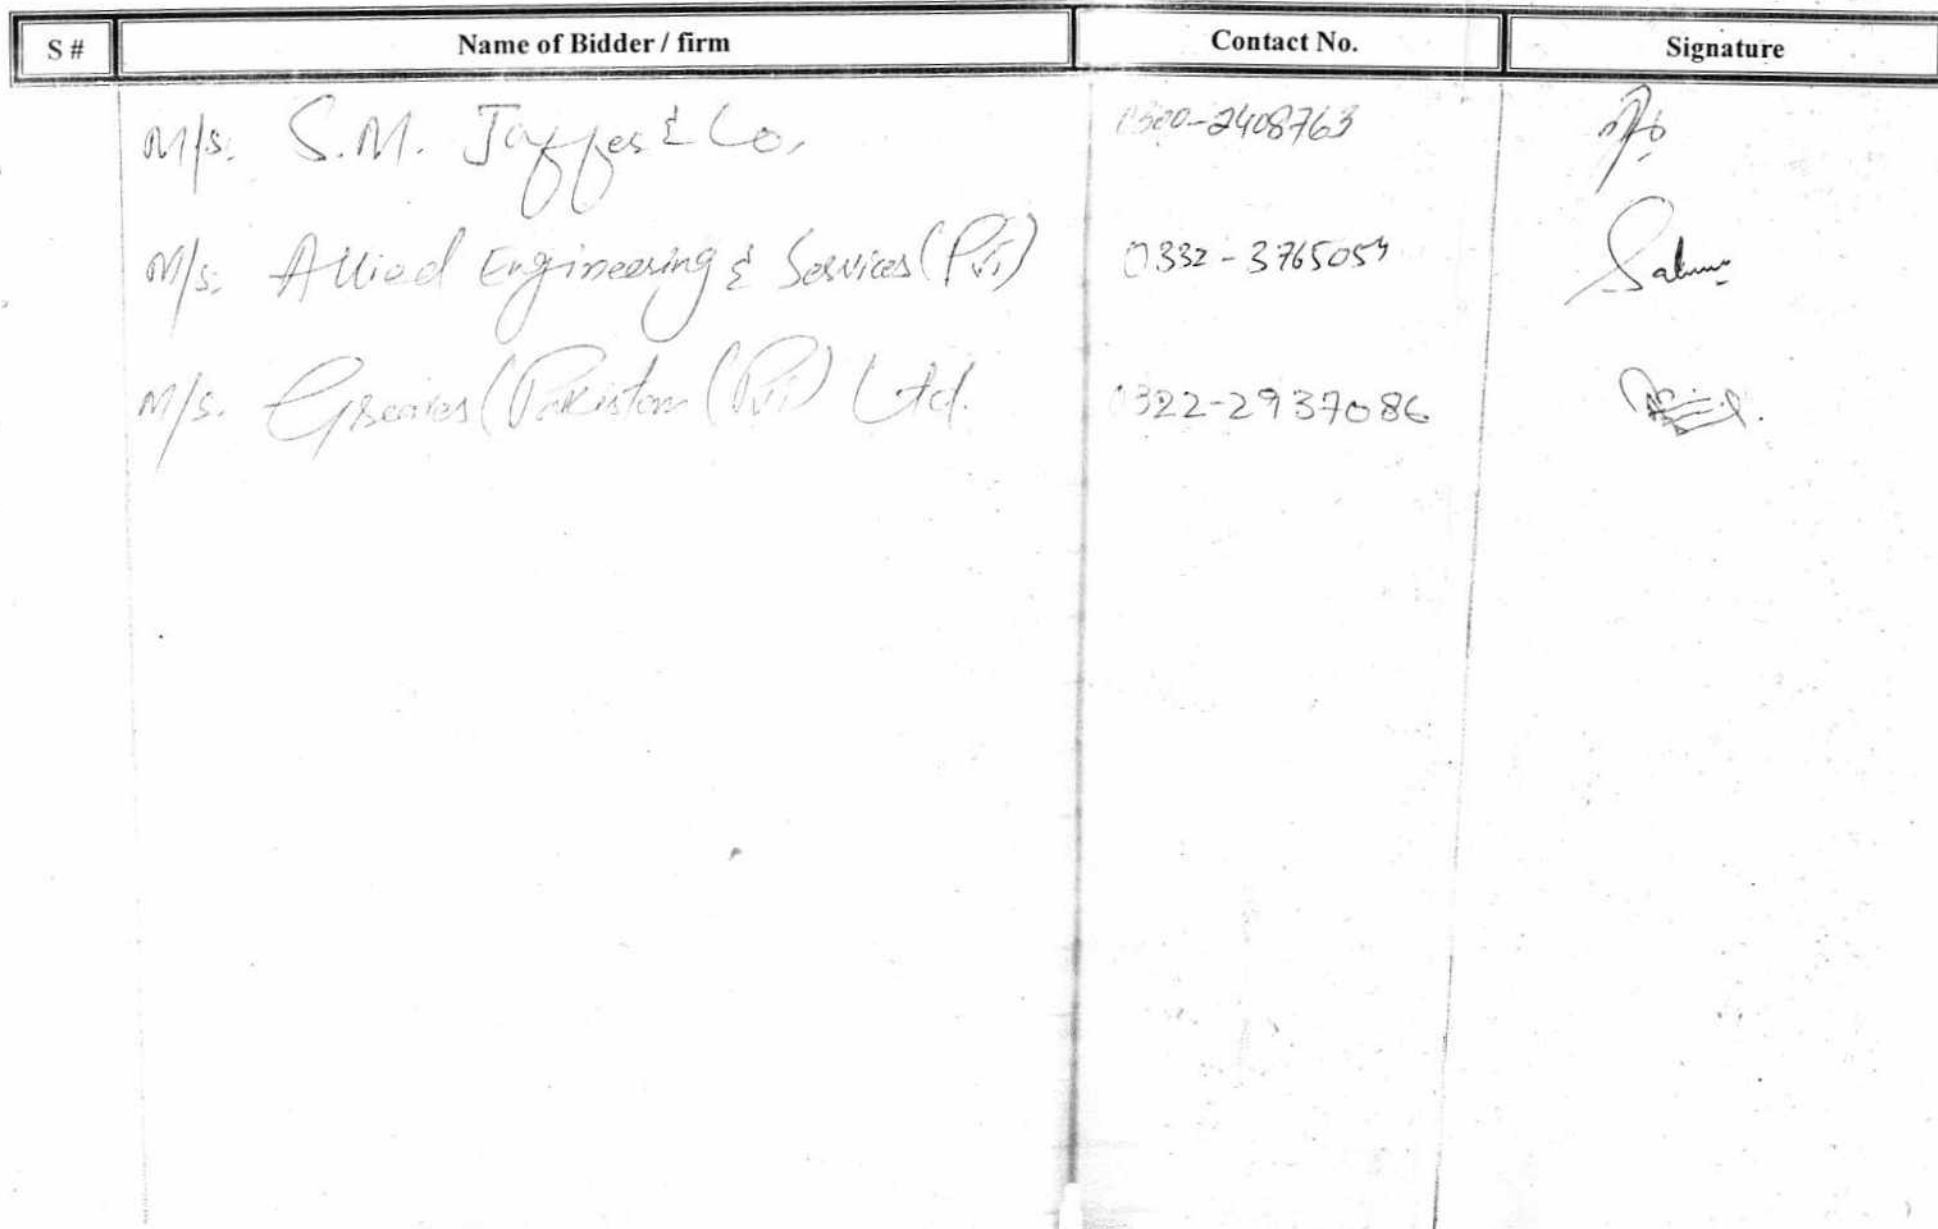 S # Name of Bidder / firm Contact No. Signature
M/s. S.M. Jaffer & Co. 0300-2408763
M/s. Allied Engineering & Services (Pvt) 0332-3765054
M/s. Greaves (Pakistan (Pvt) Ltd. 0322-2937086